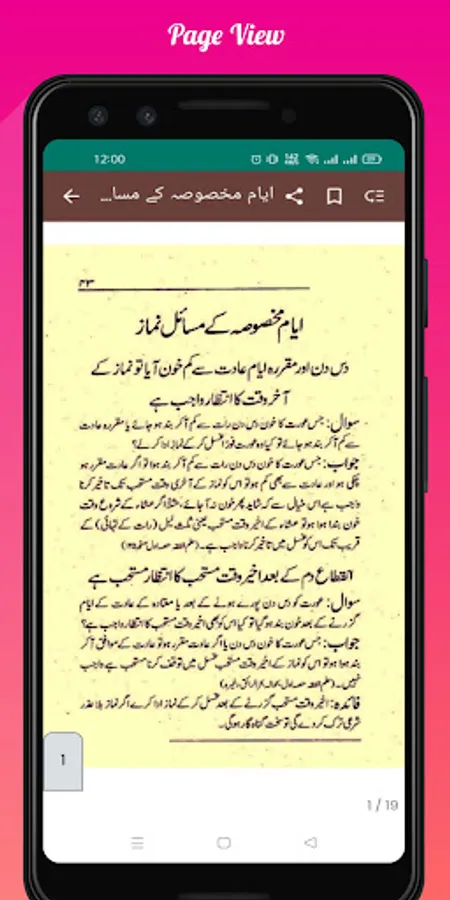 Page View
12:00
ایام مخصوصہ کے مسا...
۴۳
ایام مخصوصہ کے مسائل نماز
دس دن اور مقررہ ایام عادت سے کم خون آیا تو نماز کے
آخر وقت کا انتظار واجب ہے
سوال: جس عورت کا خون دس دن رات سے کم آکر بند ہو جائے یا مقررہ عادت
سے کم آکر بند ہو جائے تو کیا وہ عورت فوراً غسل کر کے نماز ادا کرلے؟
جواب: جس عورت کا خون دس دن رات سے کم آکر بند ہوا تو اگر عادت مقرر ہو
چکی ہو اور عادت سے بھی کم ہو تو اس کو نماز کے آخری وقت مستحب تک تاخیر کرنا
واجب ہے اس خیال سے کہ شاید پھر خون نہ آجائے، مثلاً اگر عشاء کے شروع وقت
خون بند ہوا ہو تو عشاء کے اخیر وقت مستحب یعنی ثلث لیل (رات کے تہائی) کے
قریب تک اس کو غسل میں تاخیر کرنا واجب ہے۔ (علم الفقہ حصہ اول
انقطاع دم کے بعد اخیر وقت مستحب کا انتظار مستحب ہے
سوال: عورت کو دس دن پورے ہونے کے بعد یا معتادہ کے عادت کے ایام
گزرنے کے بعد خون بند ہو گیا تو کیا اس کو بھی اخیر وقت مستحب کا انتظار واجب ہے؟
جواب: جس عورت کا خون دس دن یا اگر عادت مقرر ہو تو عادت کے موافق آکر
بند ہوا ہو تو اس کو نماز کے اخیر وقت مستحب غسل میں توقف کرنا مستحب ہے واجب
نہیں۔ (علم الفقہ حصہ اول بحوالہ البحر الرائق وغیرہ)
فائدہ: اخیر وقت مستحب گزرنے کے بعد غسل کر کے نماز ادا کرے اگر نماز بلا عذر
شرعی ترک کردے گی تو سخت گناہ گار ہوگی۔
1
1 / 19